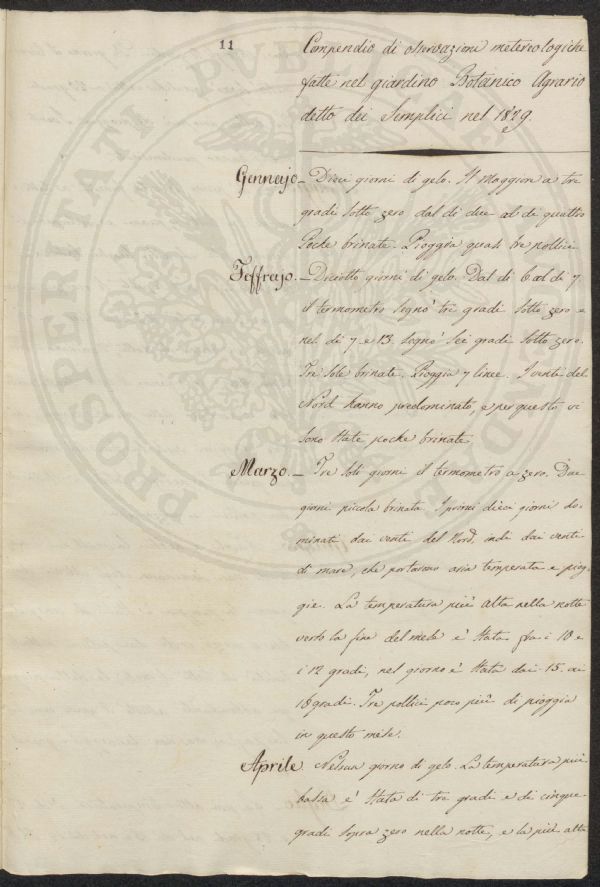 11
Compendio di osservazioni metereologiche
fatte nel giardino Botanico Agrario
detto dei Semplici nel 1829.
Gennajo – Dieci giorni di gelo. Il maggiore a tre
gradi sotto zero dal dì due al dì quattro
Poche brinate. Pioggia quasi tre pollici
Feffrajo. – Diciotto giorni di gelo. Dal dì 6 al dì 7
il termometro segnò tre gradi sotto zero e
nel dì 7 e 13. segnò sei gradi sotto zero.
Tre sole brinate. Pioggia 7 linee. I venti del
Nord hanno predominato, e per questo vi
sono state poche brinate
Marzo. – Tre soli giorni il termometro a zero. Due
giorni piccola brinata. I primi dieci giorni do-
minati dai venti del Nord, indi dai venti
di mare, che portarono aria temperata e piog-
gie. La temperatura più alta nella notte
verso la fine del mese è stata fra i 10 e
i 12 gradi, nel giorno è stata dai 15. ai
18 gradi. Tre pollici poco più di pioggia
in questo mese.
Aprile. Nessun giorno di gelo. La temperatura più
bassa è stata di tre gradi e di cinque
gradi sopra zero nella notte, e la più alta
PROSPERITATI PVBLICAE